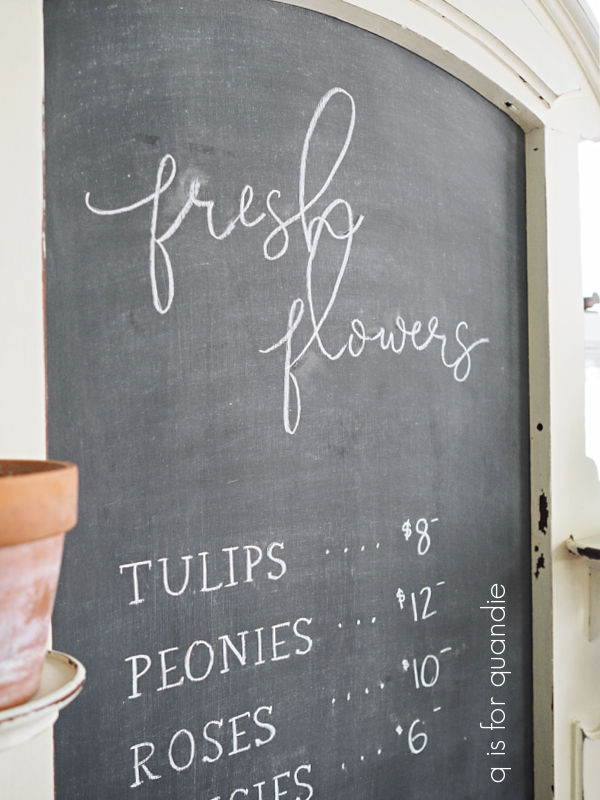 fresh
flowers
TULIPS .... $8-
PEONIES ... $12-
ROSES .... $10-
... $6-
q is for quandie